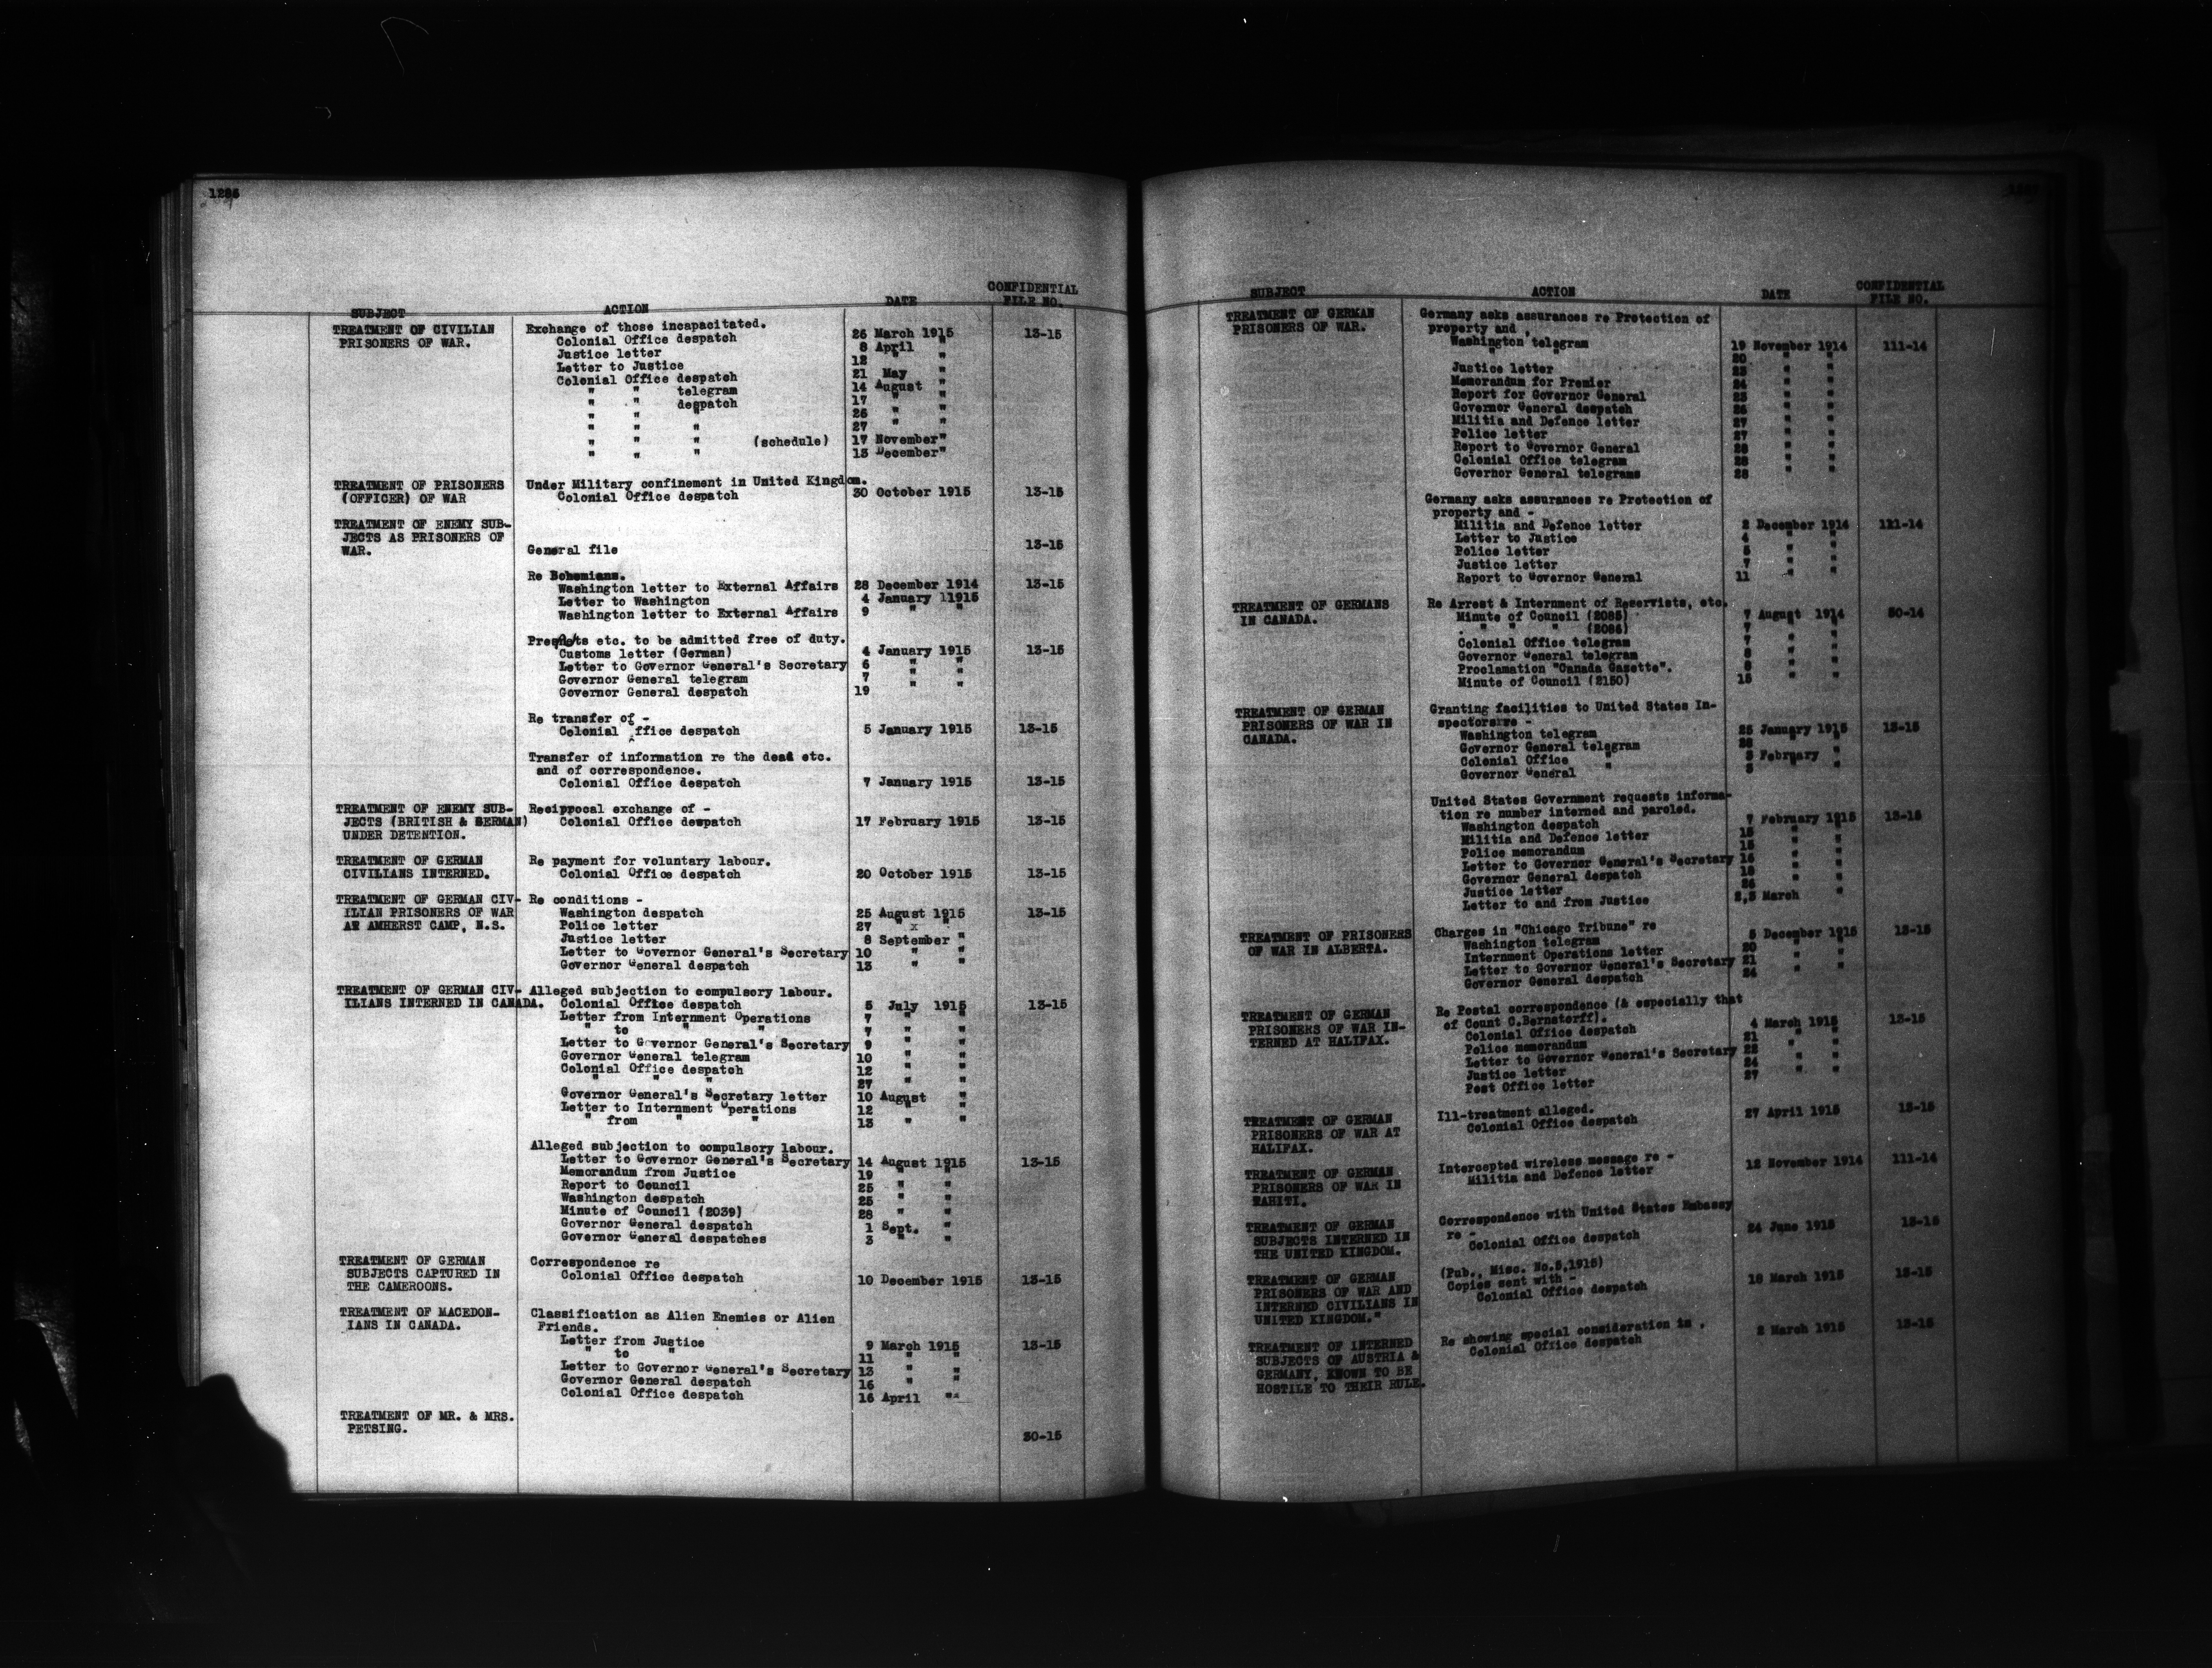 SUBJECT ACTION DATE CONFIDENTIAL FILE NO.
TREATMENT OF CIVILIAN Exchange of those incapacitated.
PRISONERS OF WAR. Colonial Office despatch 26 March 1915 13-15
Justice letter 8 April "
Letter to Justice 12 " "
Colonial Office despatch 21 May "
" " telegram 14 August "
" " despatch 17 " "
" " " 26 " "
" " " 27 " "
" " " (schedule) 17 November"
" " " 13 December"
TREATMENT OF PRISONERS Under Military confinement in United Kingdom.
(OFFICER) OF WAR Colonial Office despatch 30 October 1915 13-15
TREATMENT OF ENEMY SUB-
JECTS AS PRISONERS OF
WAR. General file 13-15
Re Bohemians.
Washington letter to External Affairs 28 December 1914 13-15
Letter to Washington 4 January 11915
Washington letter to External Affairs 9 " "
Presents etc. to be admitted free of duty.
Customs letter (German) 4 January 1915 13-15
Letter to Governor General's Secretary 6 " "
Governor General telegram 7 " "
Governor General despatch 19 " "
Re transfer of -
Colonial Office despatch 5 January 1915 13-15
Transfer of information re the dead etc.
and of correspondence.
Colonial Office despatch 7 January 1915 13-15
TREATMENT OF ENEMY SUB- Reciprocal exchange of -
JECTS (BRITISH & GERMAN) Colonial Office despatch 17 February 1915 13-15
UNDER DETENTION.
TREATMENT OF GERMAN Re payment for voluntary labour.
CIVILIANS INTERNED. Colonial Office despatch 20 October 1915 13-15
TREATMENT OF GERMAN CIV- Re conditions -
ILIAN PRISONERS OF WAR Washington despatch 25 August 1915 13-15
AT AMHERST CAMP, N.S. Police letter 27 " x "
Justice letter 8 September "
Letter to Governor General's Secretary 10 " "
Governor General despatch 13 " "
TREATMENT OF GERMAN CIV- Alleged subjection to compulsory labour.
ILIANS INTERNED IN CANADA. Colonial Office despatch 5 July 1915 13-15
Letter from Internment Operations 7 " "
" to " " 7 " "
Letter to Governor General's Secretary 9 " "
Governor General telegram 10 " "
Colonial Office despatch 12 " "
" " " 27 " "
Governor General's Secretary letter 10 August "
Letter to Internment Operations 12 " "
" from " " 13 " "
Alleged subjection to compulsory labour.
Letter to Governor General's Secretary 14 August 1915 13-15
Memorandum from Justice 19 " "
Report to Council 25 " "
Washington despatch 25 " "
Minute of Council (2039) 28 " "
Governor General despatch 1 Sept. "
Governor General despatches 3 " "
TREATMENT OF GERMAN Correspondence re
SUBJECTS CAPTURED IN Colonial Office despatch 10 December 1915 13-15
THE CAMEROONS.
TREATMENT OF MACEDON- Classification as Alien Enemies or Alien
IANS IN CANADA. Friends.
Letter from Justice 9 March 1915 13-15
" to " 11 " "
Letter to Governor General's Secretary 13 " "
Governor General despatch 16 " "
Colonial Office despatch 16 April "
TREATMENT OF MR. & MRS.
PETSING. 30-15
SUBJECT ACTION DATE CONFIDENTIAL FILE NO.
TREATMENT OF GERMAN Germany asks assurances re Protection of
PRISONERS OF WAR. property and .
Washington telegram 19 November 1914 111-14
" " 20 " "
Justice letter 23 " "
Memorandum for Premier 24 " "
Report for Governor General 25 " "
Governor General despatch 26 " "
Militia and Defence letter 27 " "
Police letter 27 " "
Report to Governor General 28 " "
Colonial Office telegram 28 " "
Governor General telegrams 28 " "
Germany asks assurances re Protection of
property and -
Militia and Defence letter 2 December 1914 111-14
Letter to Justice 4 " "
Police letter 5 " "
Justice letter 7 " "
Report to Governor General 11 " "
TREATMENT OF GERMANS Re Arrest & Internment of Reservists, etc.
IN CANADA. Minute of Council (2085) 7 August 1914 50-14
" " " (2086) 7 " "
Colonial Office telegram 7 " "
Governor General telegram 8 " "
Proclamation "Canada Gazette". 8 " "
Minute of Council (2150) 15 " "
TREATMENT OF GERMAN Granting facilities to United States In-
PRISONERS OF WAR IN spectors re -
CANADA. Washington telegram 25 January 1915 13-15
Governor General telegram 26 " "
Colonial Office " 3 February "
Governor General 8 " "
United States Government requests informa-
tion re number interned and paroled.
Washington despatch 7 February 1915 13-15
Militia and Defence letter 15 " "
Police memorandum 15 " "
Letter to Governor General's Secretary 16 " "
Governor General despatch 18 " "
Justice letter 26 " "
Letter to and from Justice 2,3 March "
TREATMENT OF PRISONERS Charges in "Chicago Tribune" re
OF WAR IN ALBERTA. Washington telegram 5 December 1915 13-15
Internment Operations letter 20 " "
Letter to Governor General's Secretary 21 " "
Governor General despatch 24
TREATMENT OF GERMAN Re Postal correspondence (& especially that
PRISONERS OF WAR IN- of Count C.Bernstorff).
TERNED AT HALIFAX. Colonial Office despatch 4 March 1915 13-15
Police memorandum 21 " "
Letter to Governor General's Secretary 22 " "
Justice letter 24 " "
Post Office letter 27
TREATMENT OF GERMAN Ill-treatment alleged.
PRISONERS OF WAR AT Colonial Office despatch 27 April 1915 13-15
HALIFAX.
TREATMENT OF GERMAN Intercepted wireless message re -
PRISONERS OF WAR IN Militia and Defence letter 12 November 1914 111-14
TAHITI.
TREATMENT OF GERMAN Correspondence with United States Embassy
SUBJECTS INTERNED IN re -
THE UNITED KINGDOM. Colonial Office despatch 24 June 1915 13-15
TREATMENT OF GERMAN (Pub., Misc. No.5,1915)
PRISONERS OF WAR AND Copies sent with -
INTERNED CIVILIANS IN Colonial Office despatch 18 March 1915 13-15
UNITED KINGDOM."
TREATMENT OF INTERNED Re showing special consideration to .
SUBJECTS OF AUSTRIA & Colonial Office despatch 2 March 1915 13-15
GERMANY, KNOWN TO BE
HOSTILE TO THEIR RULE.